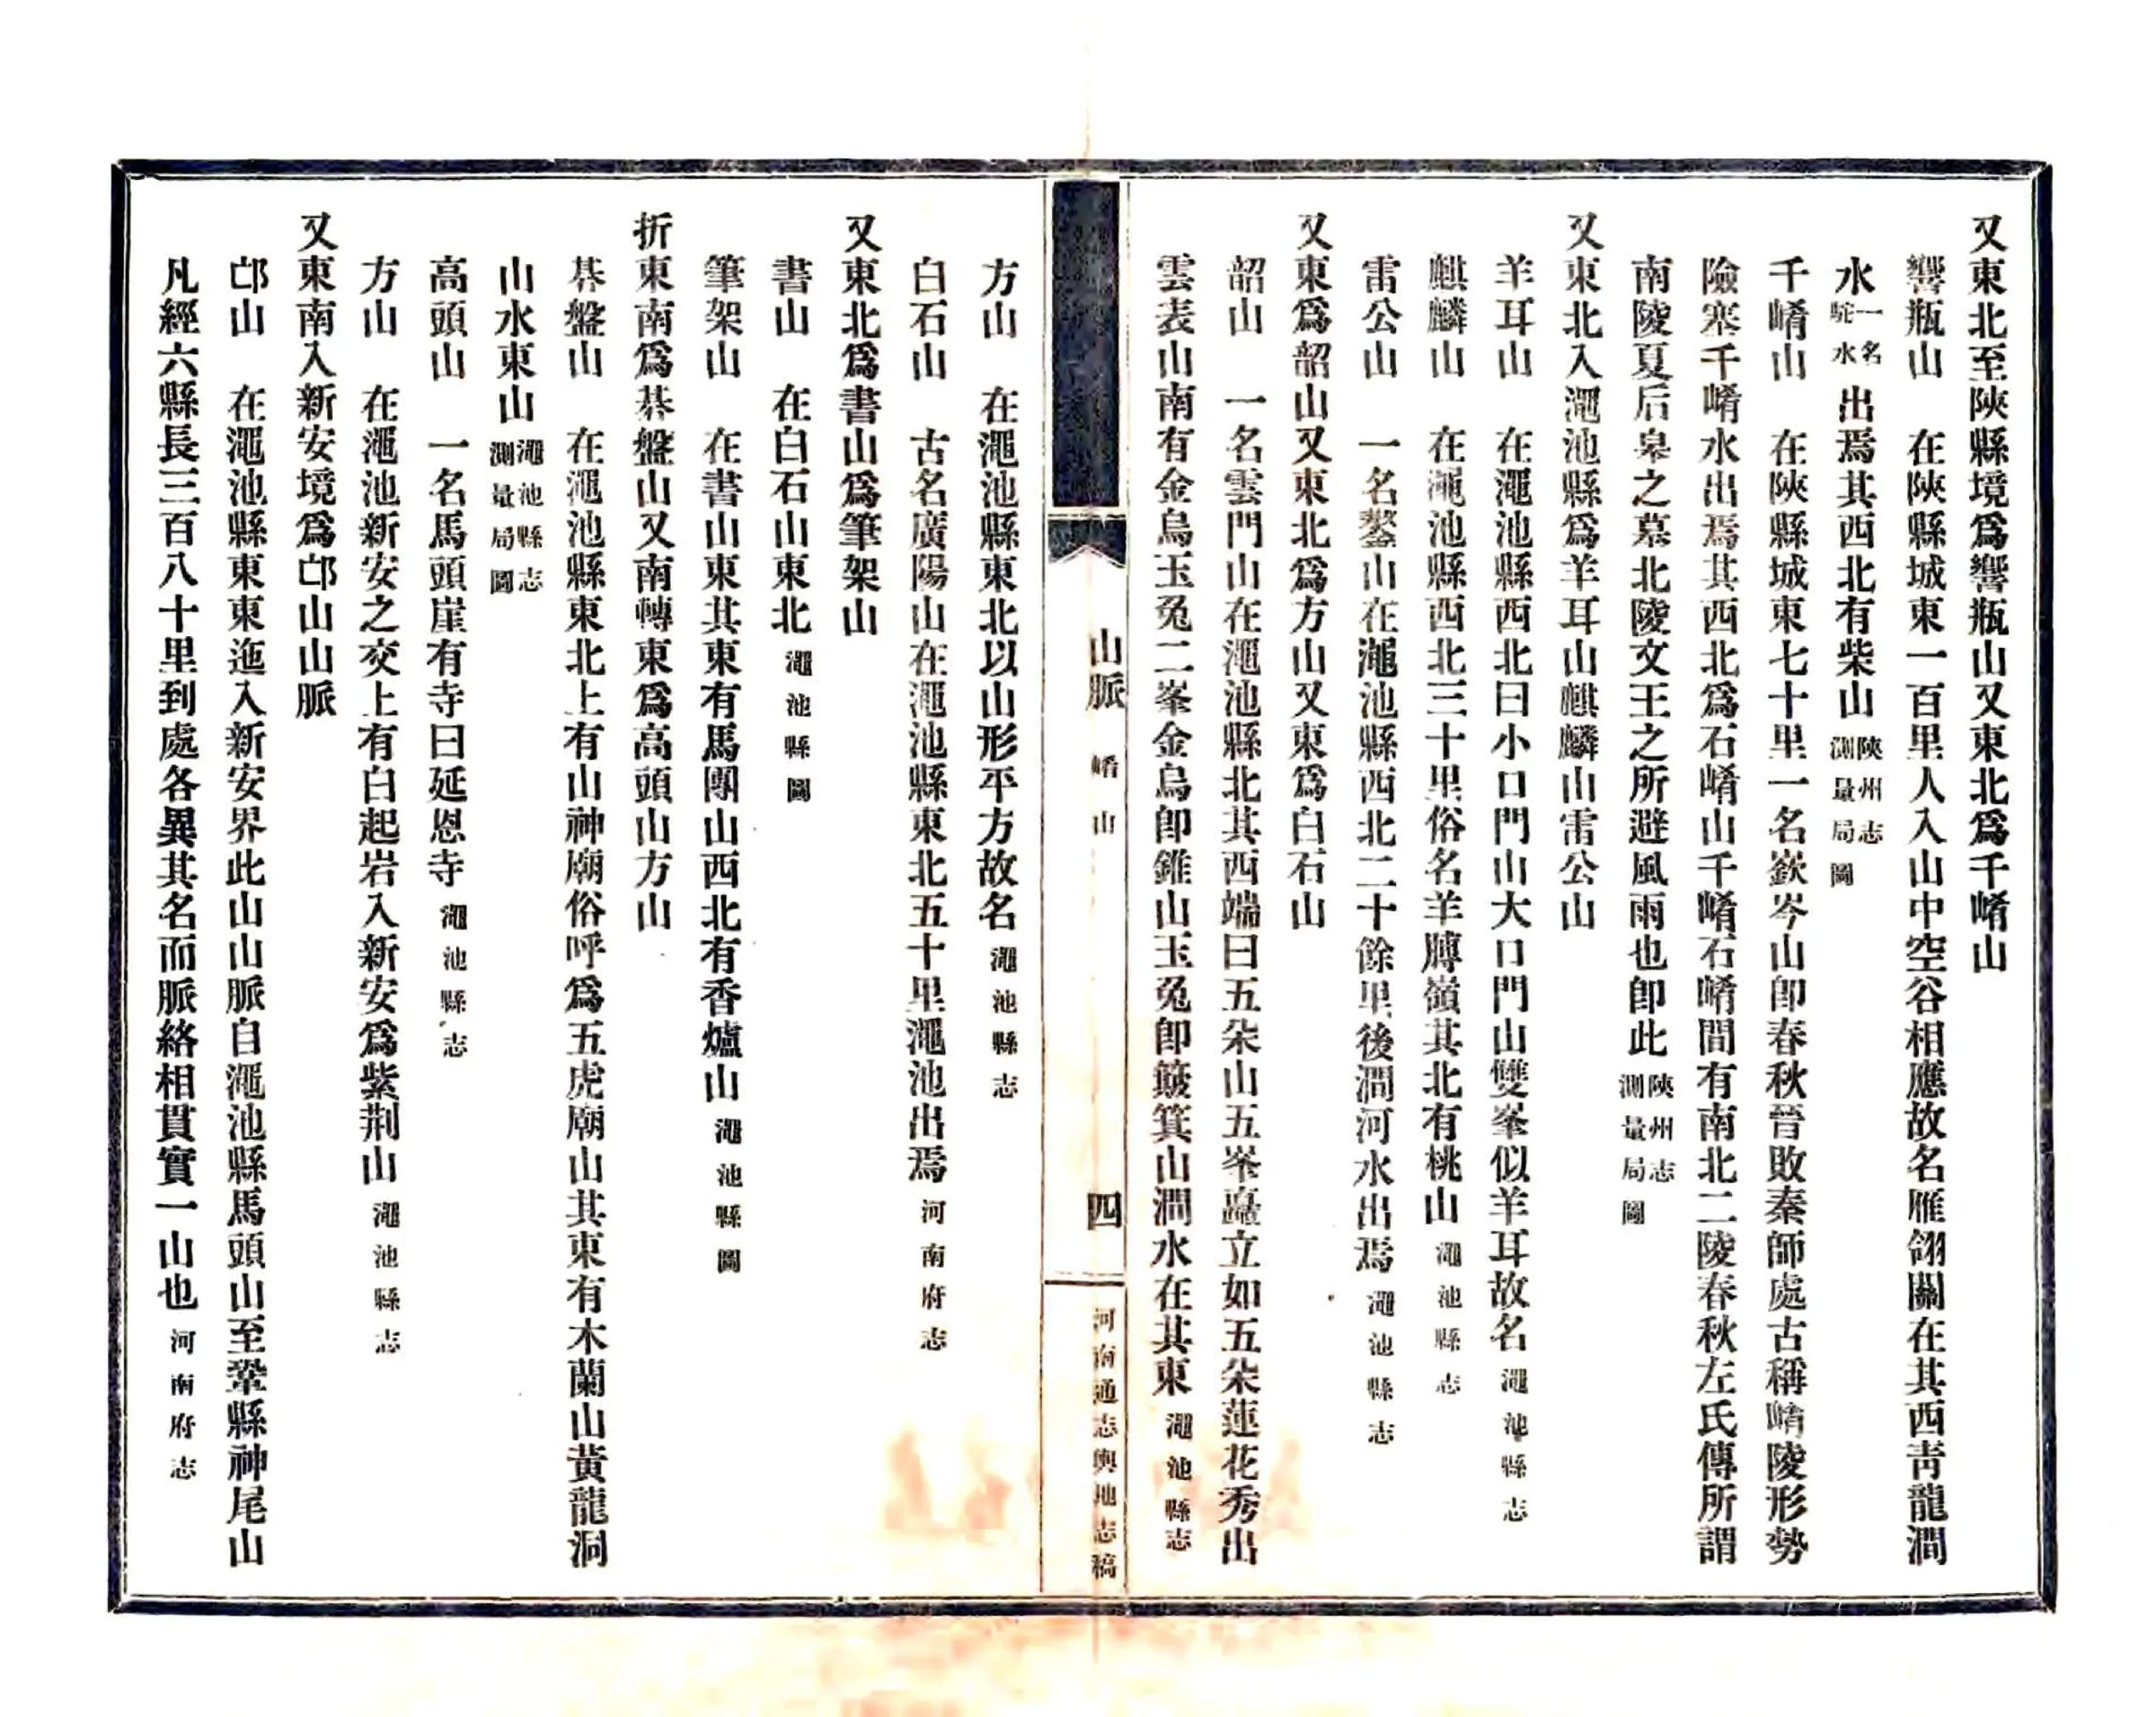 又東北至陝縣境爲響瓶山又東北爲千崤山
響瓶山　在陝縣城東一百里人入山中空谷相應故名雁翎關在其西靑龍澗
水一名駝水出焉其西北有柴山陝州志測量局圖
千崤山　在陝縣城東七十里一名嶔岑山卽春秋晉敗秦師處古稱崤陵形勢
險塞千崤水出焉其西北爲石崤山千崤石崤間有南北二陵春秋左氏傳所謂
南陵夏后皋之墓北陵文王之所避風雨也卽此陝州志測量局圖
又東北入澠池縣爲羊耳山麒麟山雷公山
羊耳山　在澠池縣西北曰小口門山大口門山雙峯似羊耳故名澠池縣志
麒麟山　在澠池縣西北三十里俗名羊膊嶺其北有桃山澠池縣志
雷公山　一名鏊山在澠池縣西北二十餘里後澗河水出焉澠池縣志
又東爲韶山又東北爲方山又東爲白石山
韶山　一名雲門山在澠池縣北其西端曰五朵山五峯矗立如五朵蓮花秀出
雲表山南有金烏玉兔二峯金烏卽錐山玉兔卽簸箕山澗水在其東澠池縣志
山脈　崤山　四　河南通志輿地志稿
方山　在澠池縣東北以山形平方故名澠池縣志
白石山　古名廣陽山在澠池縣東北五十里澠池出焉河南府志
又東北爲書山爲筆架山
書山　在白石山東北澠池縣圖
筆架山　在書山東其東有馬團山西北有香爐山澠池縣圖
折東南爲棊盤山又南轉東爲高頭山方山
棊盤山　在澠池縣東北上有山神廟俗呼爲五虎廟山其東有木蘭山黃龍洞
山水東山澠池縣志測量局圖
高頭山　一名馬頭崖有寺曰延恩寺澠池縣志
方山　在澠池新安之交上有白起岩入新安爲紫荆山澠池縣志
又東南入新安境爲邙山山脈
邙山　在澠池縣東東迤入新安界此山山脈自澠池縣馬頭山至鞏縣神尾山
凡經六縣長三百八十里到處各異其名而脈絡相貫實一山也河南府志